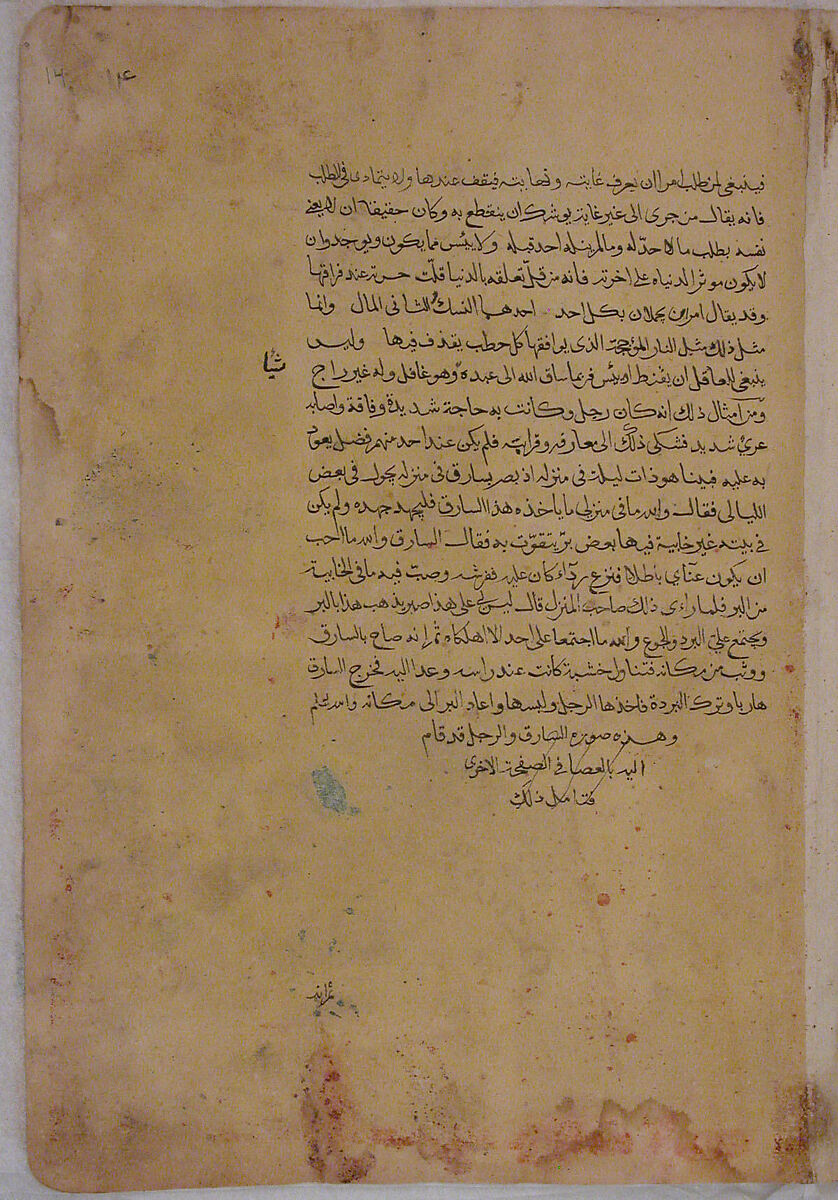 ١٤
فينبغي لمن طلب امرا ان يعرف غايته ونهايته فيقف عندها ولا يتمادى في الطلب
فانه يقال من جرى الى غير غاية يوشك ان ينقطع به وكان حقيقا ان لا يعني
نفسه بطلب ما لا حد له وما لم ينله احد قبله ولا ييئس مما يكون ويوجد وان
لا يكون موثر الدنياه على اخرته فانه من قل تعلقه بالدنيا قلت حسرته عند فراقها
وقد يقال امران يجملان بكل احد احدهما النسك والثاني المال وانما
مثل ذلك مثل النار المؤججة الذي يوافقها كل حطب يقذف فيها وليس
ينبغي للعاقل ان يقنط او ييئس فربما ساق الله الى عبده وهو غافل وله غير راج
شيا
ومن امثال ذلك انه كان رجل وكانت به حاجة شديدة وفاقة واصابه
عري شديد فشكى ذلك الى معارفه وقرابته فلم يكن عند احد منهم فضل يعود
به عليه فبينا هو ذات ليلة في منزله اذ بصر بسارق في منزله يجول في بعض
الليالي فقال والله ما في منزلي ما ياخذه هذا السارق فليجهد جهده ولم يكن
في بيته غير خابية فيها بعض بر يتقوت به فقال السارق والله ما احب
ان يكون عنآي باطلا فنزع ردآء كان عليه ففرشه وصب فيه ما في الخابية
من البر فلما راى ذلك صاحب المنزل قال ليس لي على هذا صبر يذهب هذا بالبر
ويجتمع علي البرد والجوع والله ما اجتمعا على احد الا اهلكاه ثم انه صاح بالسارق
ووثب من مكانه فتناول خشبة كانت عند راسه وعدا اليه فخرج السارق
هاربا وترك البردة فاخذها الرجل ولبسها واعاد البر الى مكانه والله يعلم
وهذه صورة السارق والرجل قد قام
اليه بالعصا في الصفحة الاخرى
فتامل ذلك
ثم انه